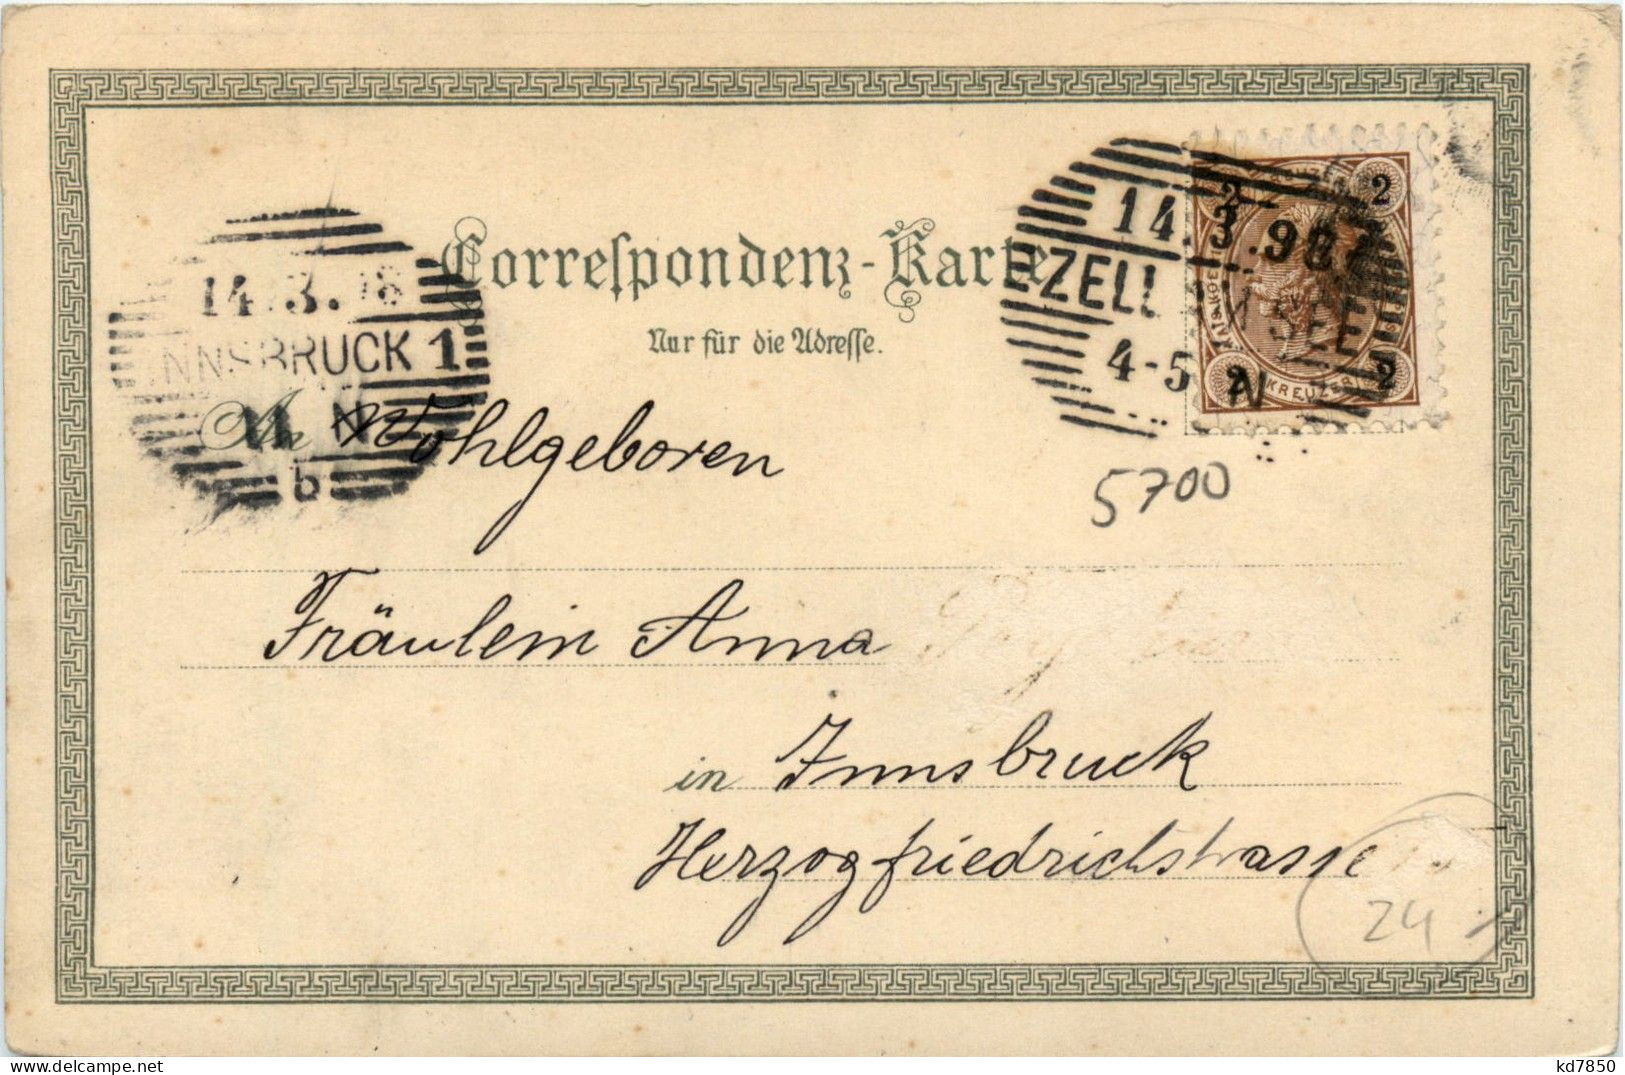 Correspondenz-Karte
Nur für die Adresse.
14.3.98
INNSBRUCK 1
11 N
b
14.3.98
ZELL AM SEE
4-5 N
2 KREUZER 2
2 KREUZER 2
5700
An Wohlgeboren
Fräulein Anna
in Innsbruck
Herzogfriedrichstrasse
24
kd7850